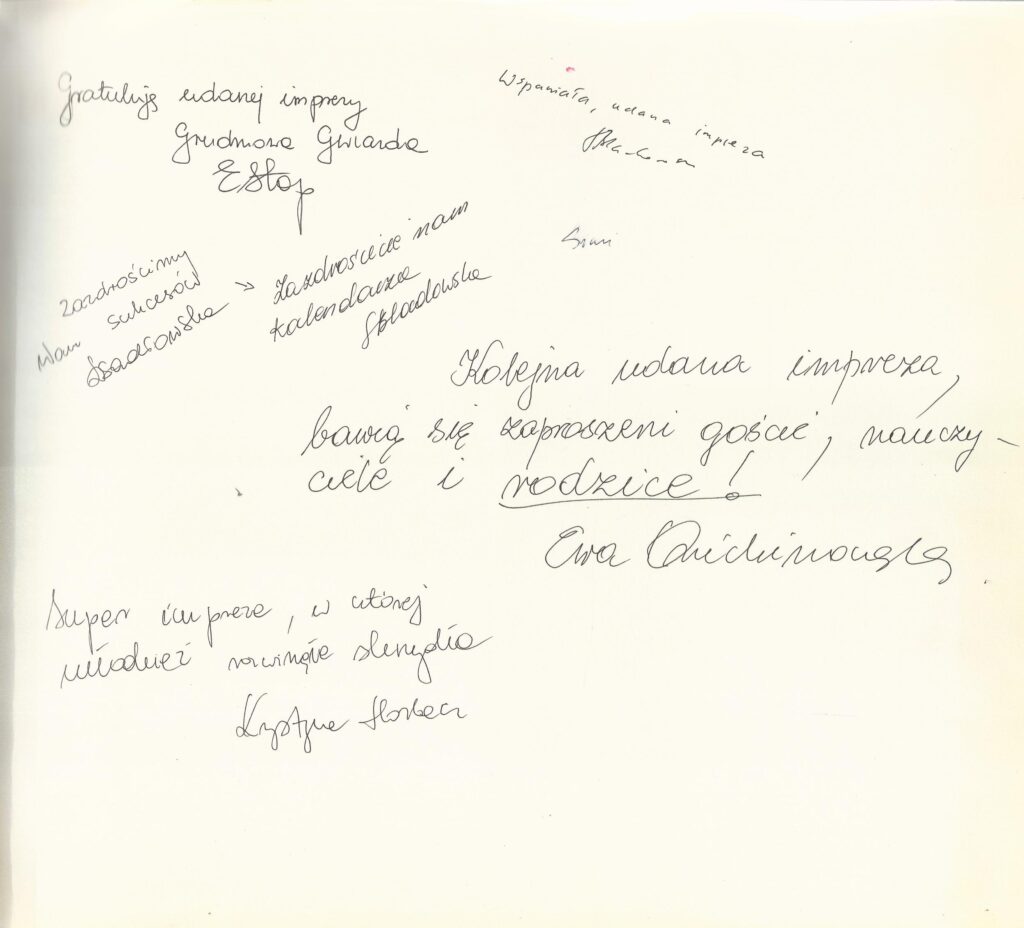 Gratuluję udanej imprezy
Grudniowa Gwiazda
EStop
Wspaniała, udana impreza
zazdrościmy
Wam sukcesów
Zazdrościcie nam
kalendarza
Kolejna udana impreza,
bawią się zaproszeni goście, nauczy-
ciele i rodzice!
Ewa
Super impreza, w której
młodzież rozwinęła skrzydła
Krystyna